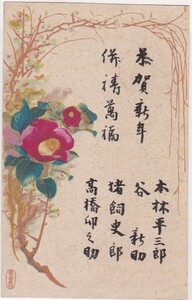 恭賀新年
併禱萬福
木林平三郎
谷新助
猪飼史郎
高橋卯之助